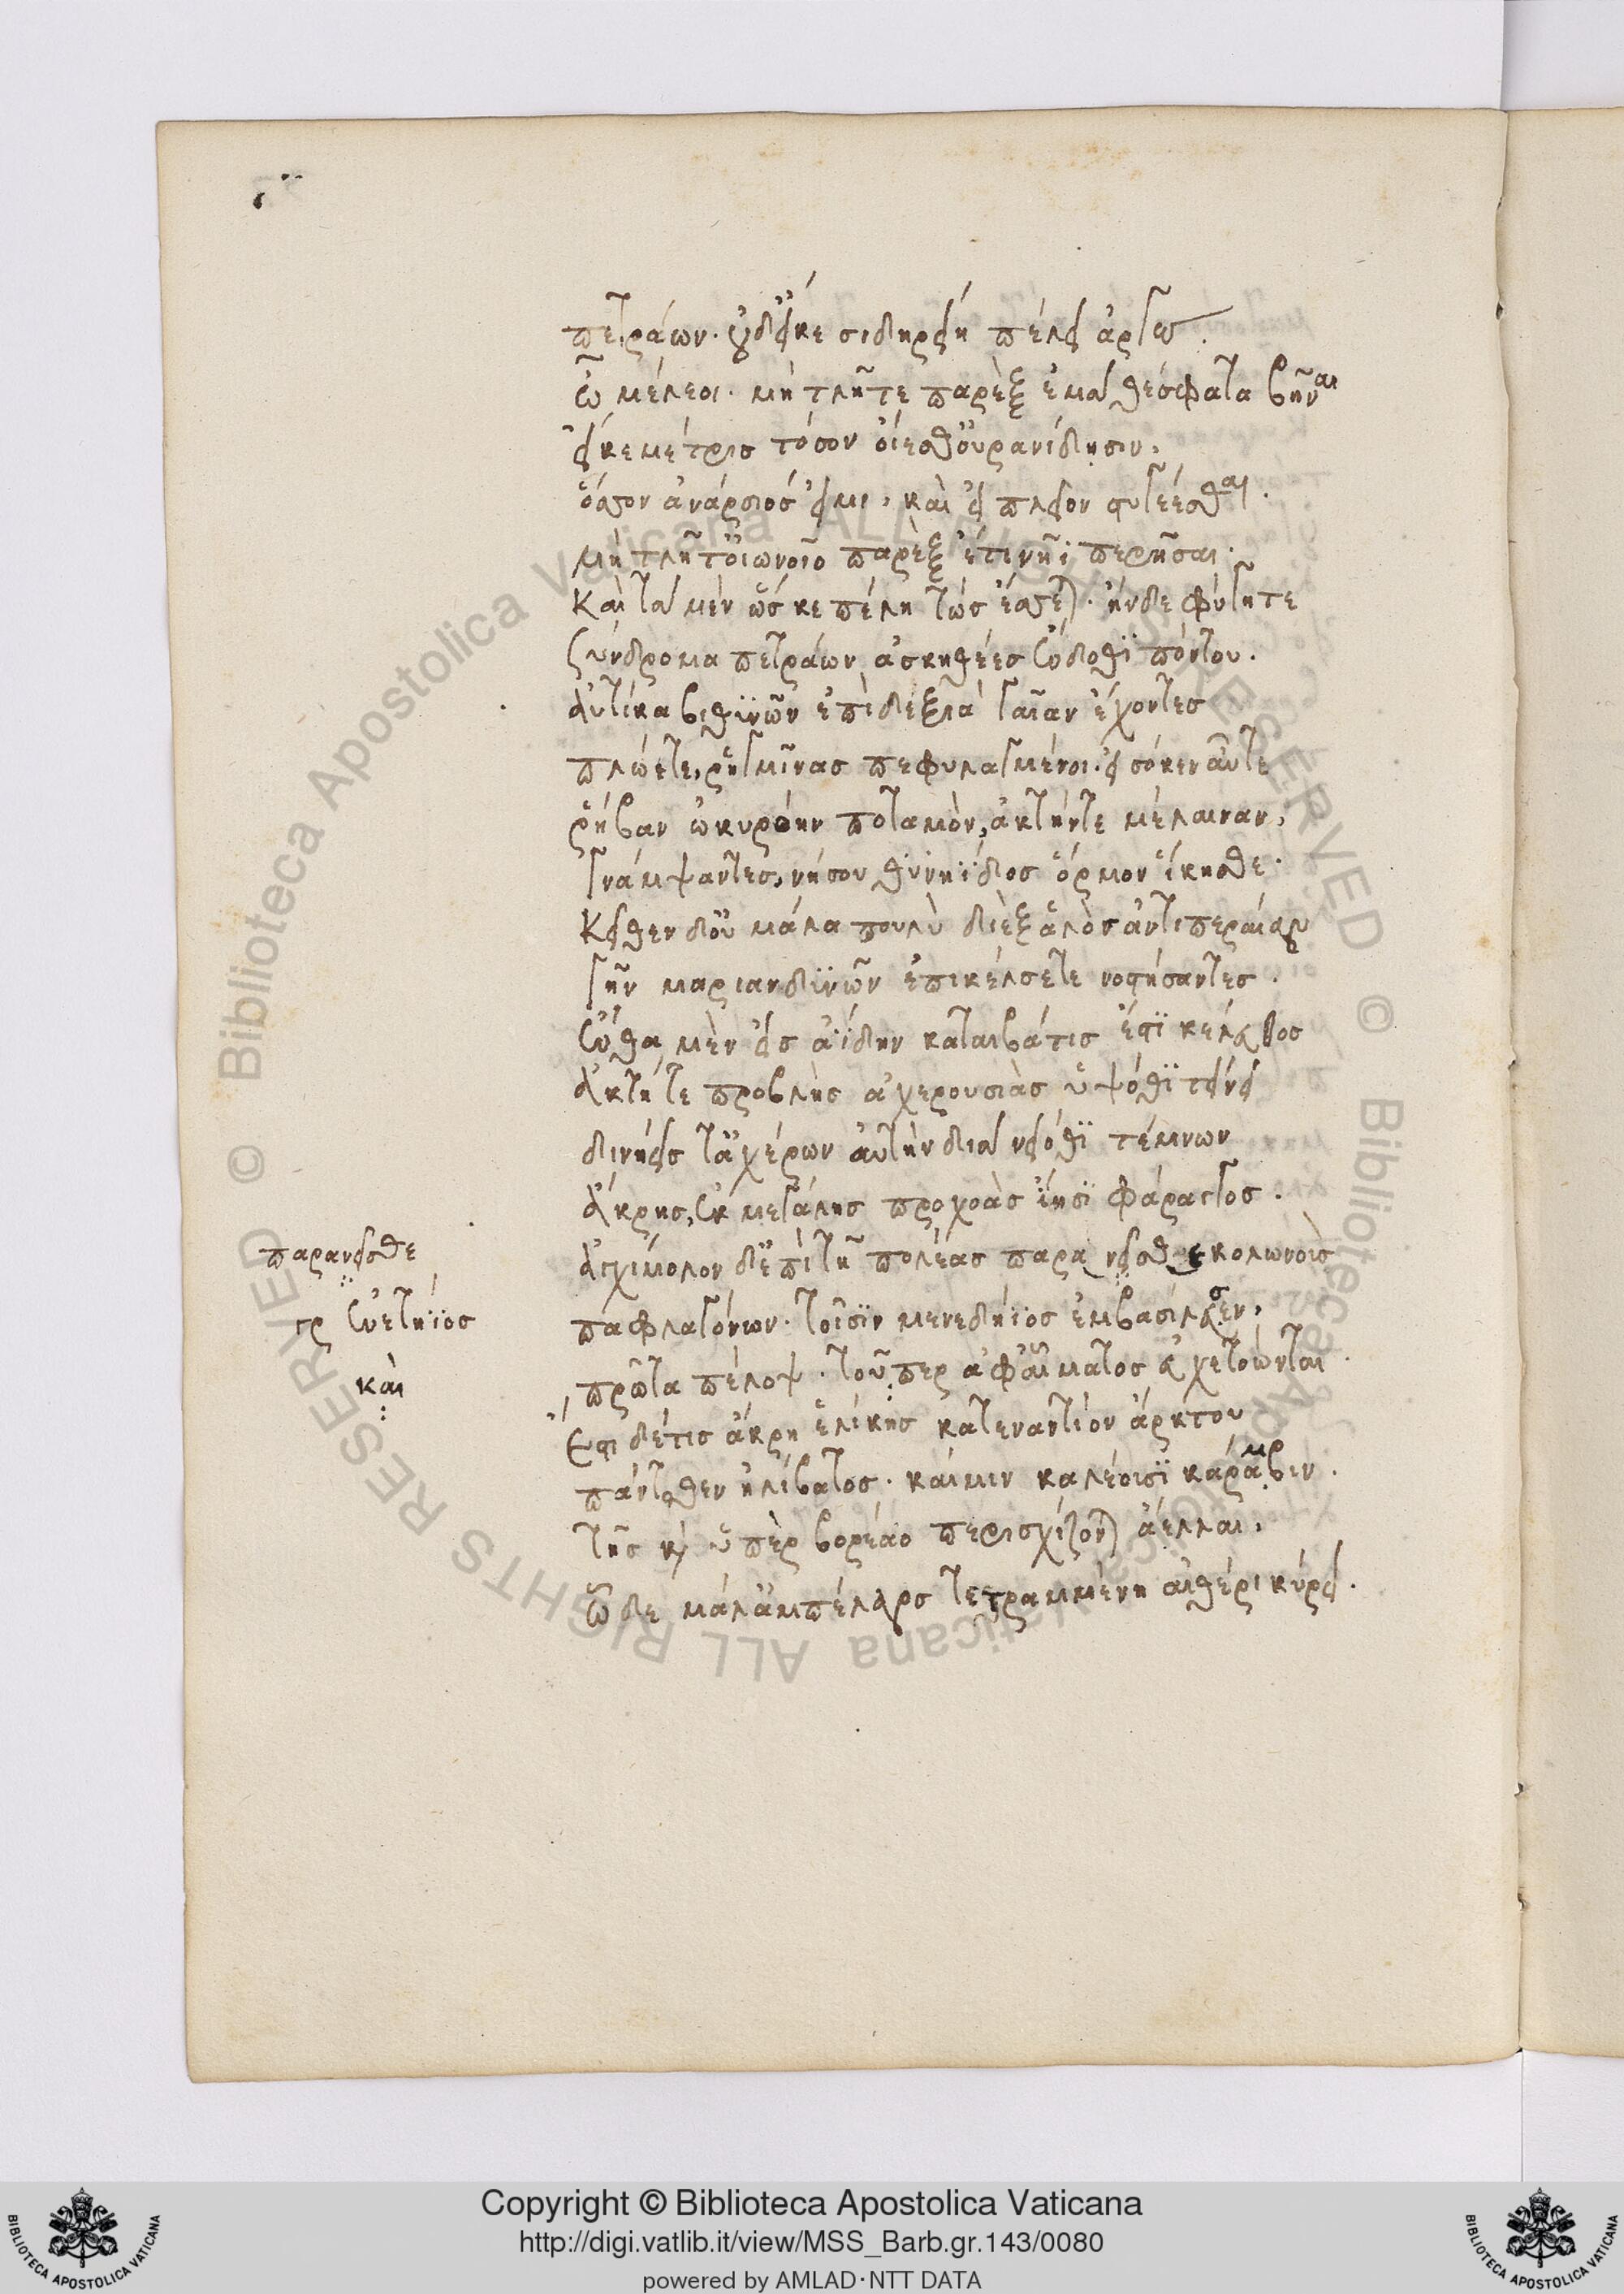 πετράων. οὐδ' εἴκε σιδηρείη πέλει ἀργώ.
ὦ μέλεοι. μὴ τλῆτε παρὲξ ἐμὰ θέσφατα βῆναι
εἴ κέ με τρὶς τόσον οἴεσθ' οὐρανίδησιν,
ὅσσον ἀνάρσιός εἰμι, καὶ εἰ πλεῖον στυγέεσθαι.
μὴ τλῆτ' οἰωνοῖο παρὲξ ἔτι νηῒ περῆσαι.
Καὶ τὰ μὲν ὥς κε πέλῃ τὼς ἔσσεται. ἢν δὲ φύγητε
ξύνδρομα πετράων ἀσκηθέες ἔνδοθι πόντου.
αὐτίκα βιθυνῶν ἐπὶ δεξιὰ γαῖαν ἔχοντες
πλώετε, ῥηγμῖνας πεφυλαγμένοι. εἰσόκεν αὖτε
ῥήβαν ὠκυρόην ποταμὸν, ἀκτήντε μέλαιναν,
γνάμψαντες, νήσου θυνηΐδος ὅρμον ἵκησθε.
Κεῖθεν δ' οὐ μάλα πουλὺ διὲξ ἁλὸς ἀντιπέραιαν
γῆν μαριανδυνῶν ἐπικέλσετε νοστήσαντες.
ἔνθα μὲν εἰς ἀΐδην καταιβάτις ἔστι κέλευθος
ἀκτή τε προβλὴς ἀχερουσιὰς ὑψόθι τείνει
δινήεις τ' ἀχέρων αὐτὴν διὰ νειόθι τέμνων
ἄκρης, ἐκ μεγάλης προχοὰς ἵησι φάραγγος.
ἀγχίμολον δ' ἐπὶ τῇ πολέας παρανεῖσθε κολωνοὺς
παρανεῖσθε
παφλαγόνων. τοῖσίν μενεδήϊος ἐμβασίλευσεν,
γρ ἐνετήϊος
πρῶτα πέλοψ. τοῦπερ ἀφ' αἵματος εὐχετόωνται.
καὶ
ἔστι δέ τις ἄκρη ἑλίκης κατεναντίον ἄρκτου
πάντοθεν ἠλίβατος. καί μιν καλέουσι κάραμβιν.
τῆς καὶ ὑπὲρ βορέαο περισχίζονται ἄελλαι,
ὧδε μάλ' ἀμπέλαγος τετραμμένη αἰθέρι κύρει.
Copyright © Biblioteca Apostolica Vaticana
http://digi.vatlib.it/view/MSS_Barb.gr.143/0080
powered by AMLAD·NTT DATA